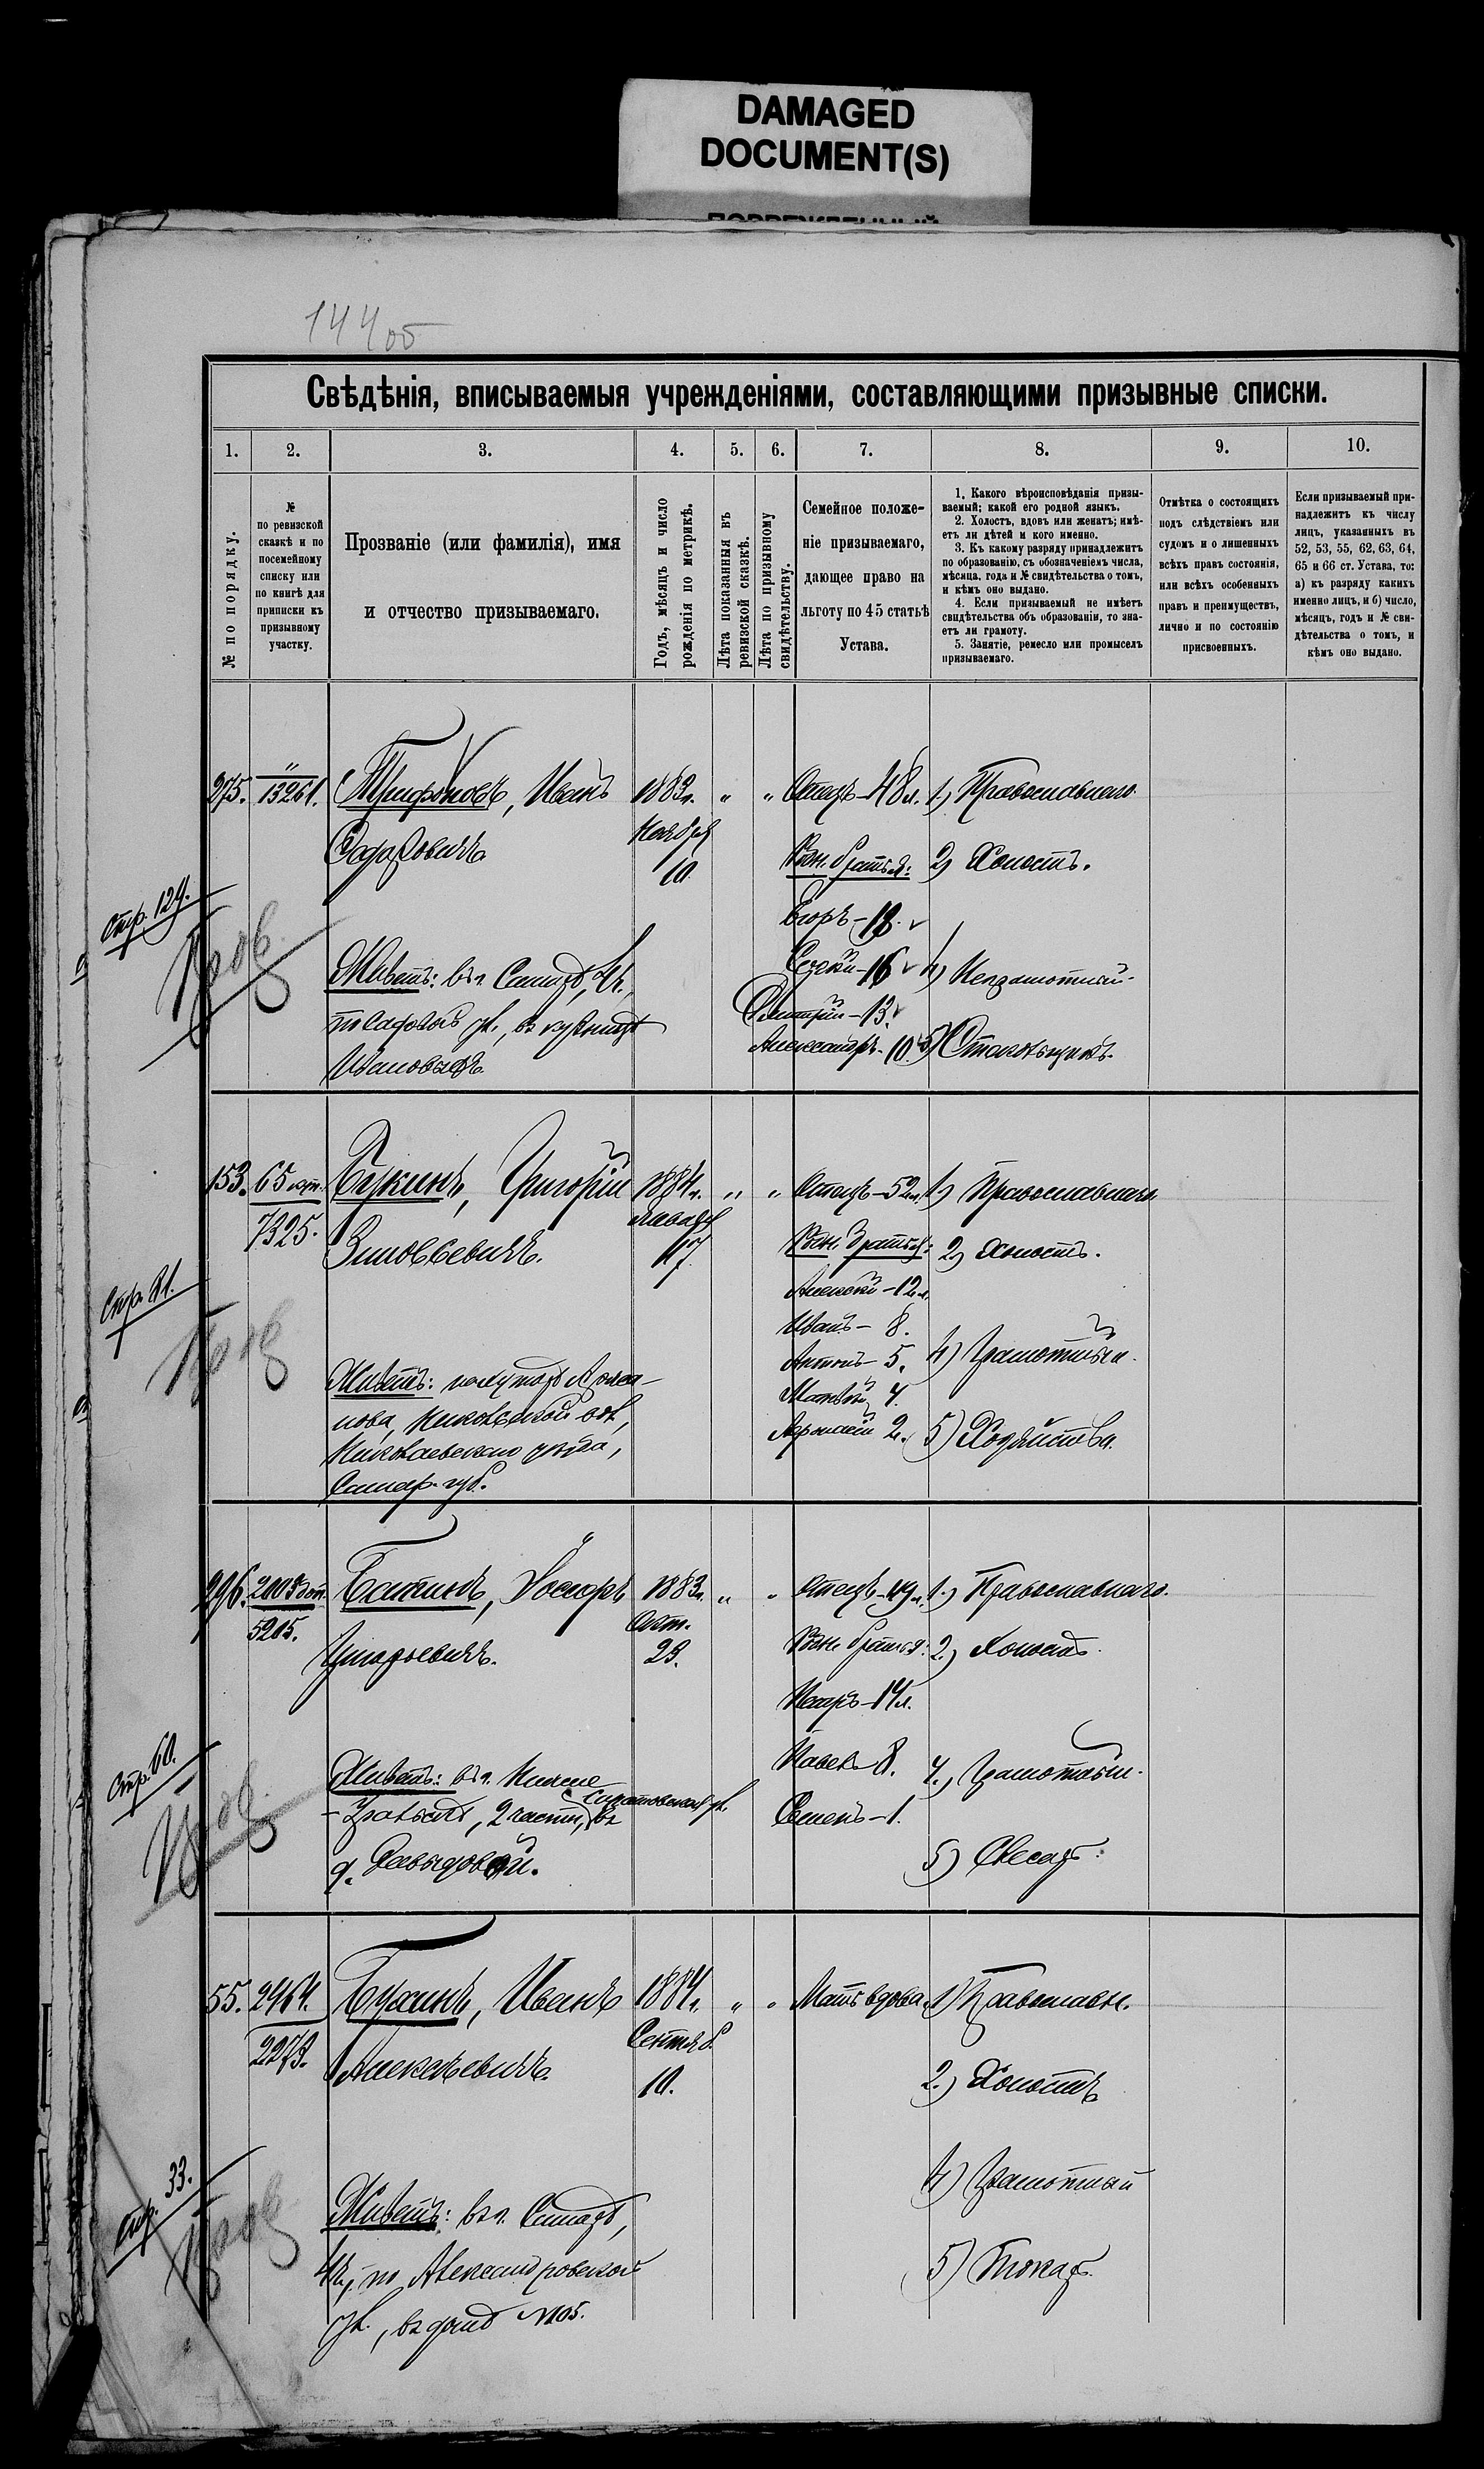 DAMAGED
DOCUMENT(S)
144 об
Свѣдѣнія, вписываемыя учрежденіями, составляющими призывные списки.
1. 2. 3. 4. 5. 6. 7. 8. 9. 10.
№ по порядку.
№
по ревизской
сказкѣ и по
посемейному
списку или
по книгѣ для
приписки къ
призывному
участку.
Прозваніе (или фамилія), имя
и отчество призываемаго.
Годъ, мѣсяцъ и число
рожденія по метрикѣ.
Лѣта показанныя въ
ревизской сказкѣ.
Лѣта по призывному
свидѣтельству.
Семейное положе-
ніе призываемаго,
дающее право на
льготу по 45 статьѣ
Устава.
1. Какого вѣроисповѣданія призы-
ваемый; какой его родной языкъ.
2. Холостъ, вдовъ или женатъ; имѣ-
етъ ли дѣтей и кого именно.
3. Къ какому разряду принадлежитъ
по образованію, съ обозначеніемъ числа,
мѣсяца, года и № свидѣтельства о томъ,
и кѣмъ оно выдано.
4. Если призываемый не имѣетъ
свидѣтельства объ образованіи, то зна-
етъ ли грамоту.
5. Занятіе, ремесло или промыселъ
призываемаго.
Отмѣтка о состоящихъ
подъ слѣдствіемъ или
судомъ и о лишенныхъ
всѣхъ правъ состоянія,
или всѣхъ особенныхъ
правъ и преимуществъ,
лично и по состоянію
присвоенныхъ.
Если призываемый при-
надлежитъ къ числу
лицъ, указанныхъ въ
52, 53, 55, 62, 63, 64,
65 и 66 ст. Устава, то:
а) къ разряду какихъ
именно лицъ, и б) число,
мѣсяцъ, годъ и № сви-
дѣтельства о томъ, и
кѣмъ оно выдано.
275. " 13261. Трифоновъ, Иванъ 1883 г. " " Отецъ-48 л. 1) Православнаго
Ноября
10
Родн. братья: 2) Холостъ.
Стр. 129.
Егоръ-18.
Живетъ: въ г. Самарѣ, 4 ч., Сергѣй-16 4) Неграмотный
Дмитрій-13.
Ивановыхъ. Александръ-10. 5)
153. 65 7325. Григорій 1884 г. " " Отецъ-52 л. 1) Православнаго
Января
Зиновьевичъ. 17.
Родн. братья: 2) Холостъ.
Стр. 21.
Алексѣй-12 л.
Иванъ- 8.
Антонъ- 5. 4) Грамотный.
Живетъ:
Матвѣй 4.
Николаевскаго уѣзда, 2. 5) Хозяйства.
Самар. губ.
296. 5205. 1883 г. " " Отецъ-49 л. 1.) Православнаго.
Окт.
23.
Родн. братья: 2.) Холостъ.
Стр. 60.
Петръ-14 л.
Живетъ: въ г. Павелъ 8. 4.) Грамотный.
2 части, Саратовской ул. въ
Семенъ-1.
д. Давыдовой. 5) Слесарь.
55. 2464. 2273. Иванъ 1884 г. " " Мать вдова. 1) Православн.
Сентяб.
Алексѣевичъ. 10. 2.) Холостъ
Стр. 33.
4) Грамотный
Живетъ: въ г. Самарѣ,
4 ч., по Александровской 5) Токарь.
ул., въ домѣ №105.